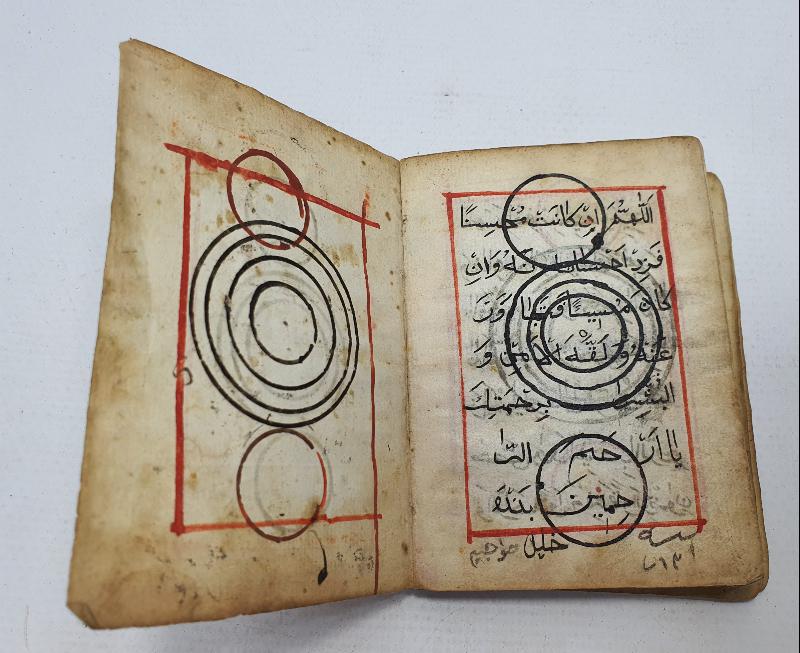 اللهم ان كانت محسنا
فزد احسانا له وان
كان مسيئا فتجاوز
عنه ولقه الامن و
البشر برحمتك
يا ار حيم الرا
حمين بنده
خليل
سنه